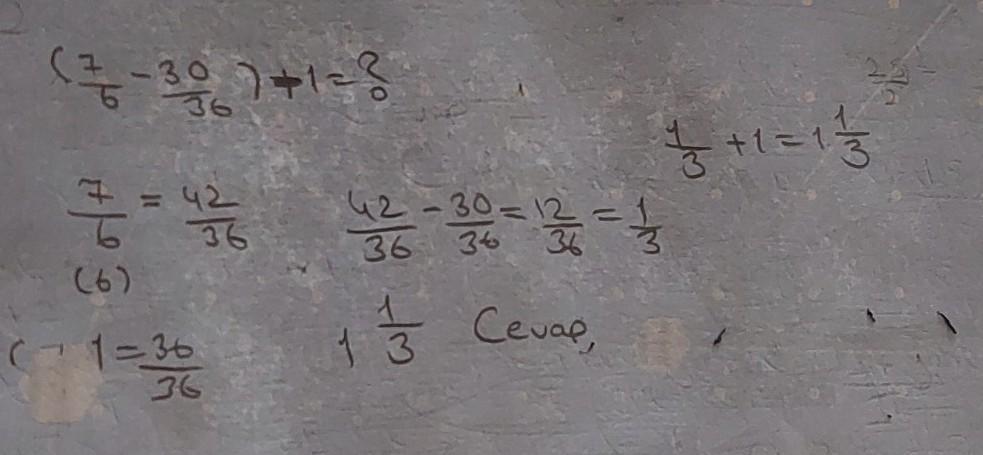 (7/6 - 30/36) + 1 = ?
1/3 + 1 = 1 1/3
7/6 = 42/36
(6)
42/36 - 30/36 = 12/36 = 1/3
1 = 36/36
1 1/3 Cevap,